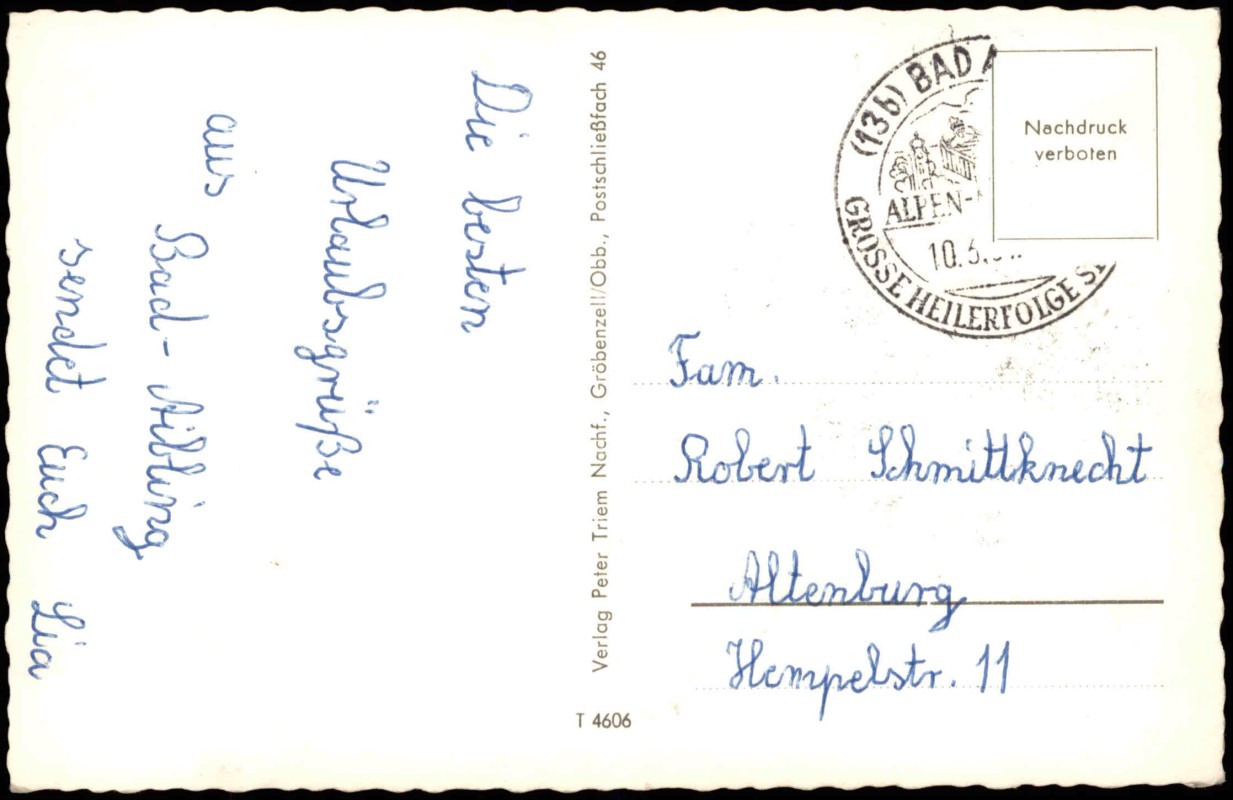 Die besten
Urlaubsgrüße
aus
Bad-Aibling
sendet Euch Lia
Verlag Peter Triem Nachf., Gröbenzell/Obb., Postschließfach 46
T 4606
(13b) BAD A
ALPEN-
10.
GROSSE HEILERFOLGE
Nachdruck
verboten
Fam.
Robert Schmittknecht
Altenburg
Hempelstr. 11